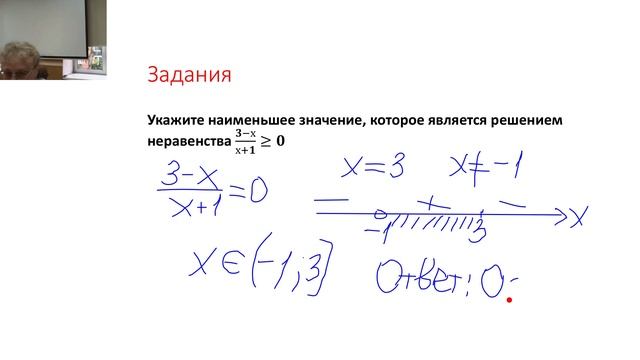 Задания
Укажите наименьшее значение, которое является решением
неравенства (3−x)/(x+1) ≥ 0
(3-x)/(x+1) = 0
x = 3 x ≠ -1
− + −
-1 3 x
x ∈ (-1; 3]
Ответ: 0.